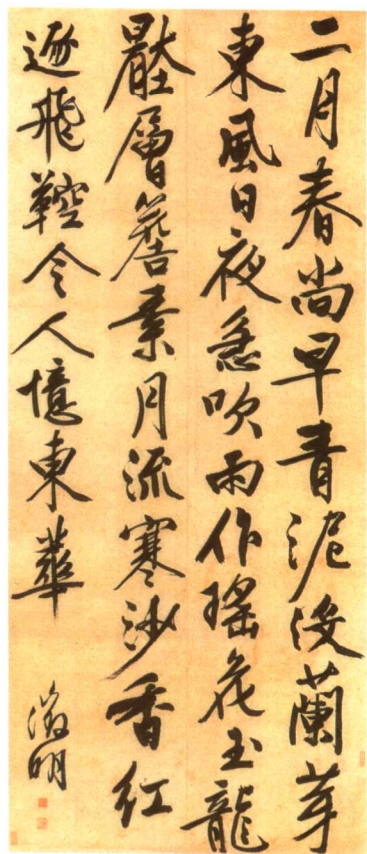 二月春尚早青泥没蘭芽
東風日夜急吹雨作瑤花玉龍
壓層簷素月流寒沙香紅
逐飛鞚令人憶東華
徵明